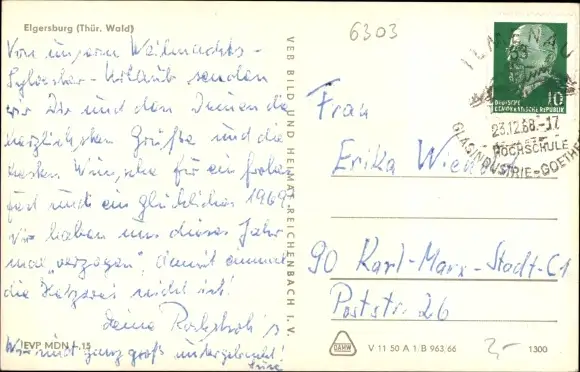 Elgersburg (Thür. Wald)
6303
Von unserm Weihnachts-
Sylvester-Urlaub senden
wir Dir und den Deinen die
herzlichsten Grüße und die
besten Wünsche für ein frohes
Fest und ein glückliches 1969.
Wir haben uns dieses Jahr
mal „verzogen", damit einmal
die Hetzerei nicht ist!
Deine
Wir sind ganz groß untergebracht!
IEVP MDN -,15
VEB BILD UND HEIMAT REICHENBACH I. V.
ILMENAU
63
10
DEUTSCHE
DEMOKRATISCHE REPUBLIK
23.12.68.-17
HOCHSCHULE
GLASINDUSTRIE-GOETHE
Frau
Erika
90 Karl-Marx-Stadt-C1
Poststr. 26
DAHW
V 11 50 A 1/B 963/66
1300